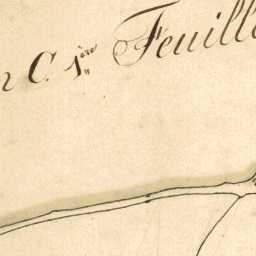 n C. 1ère Feuill